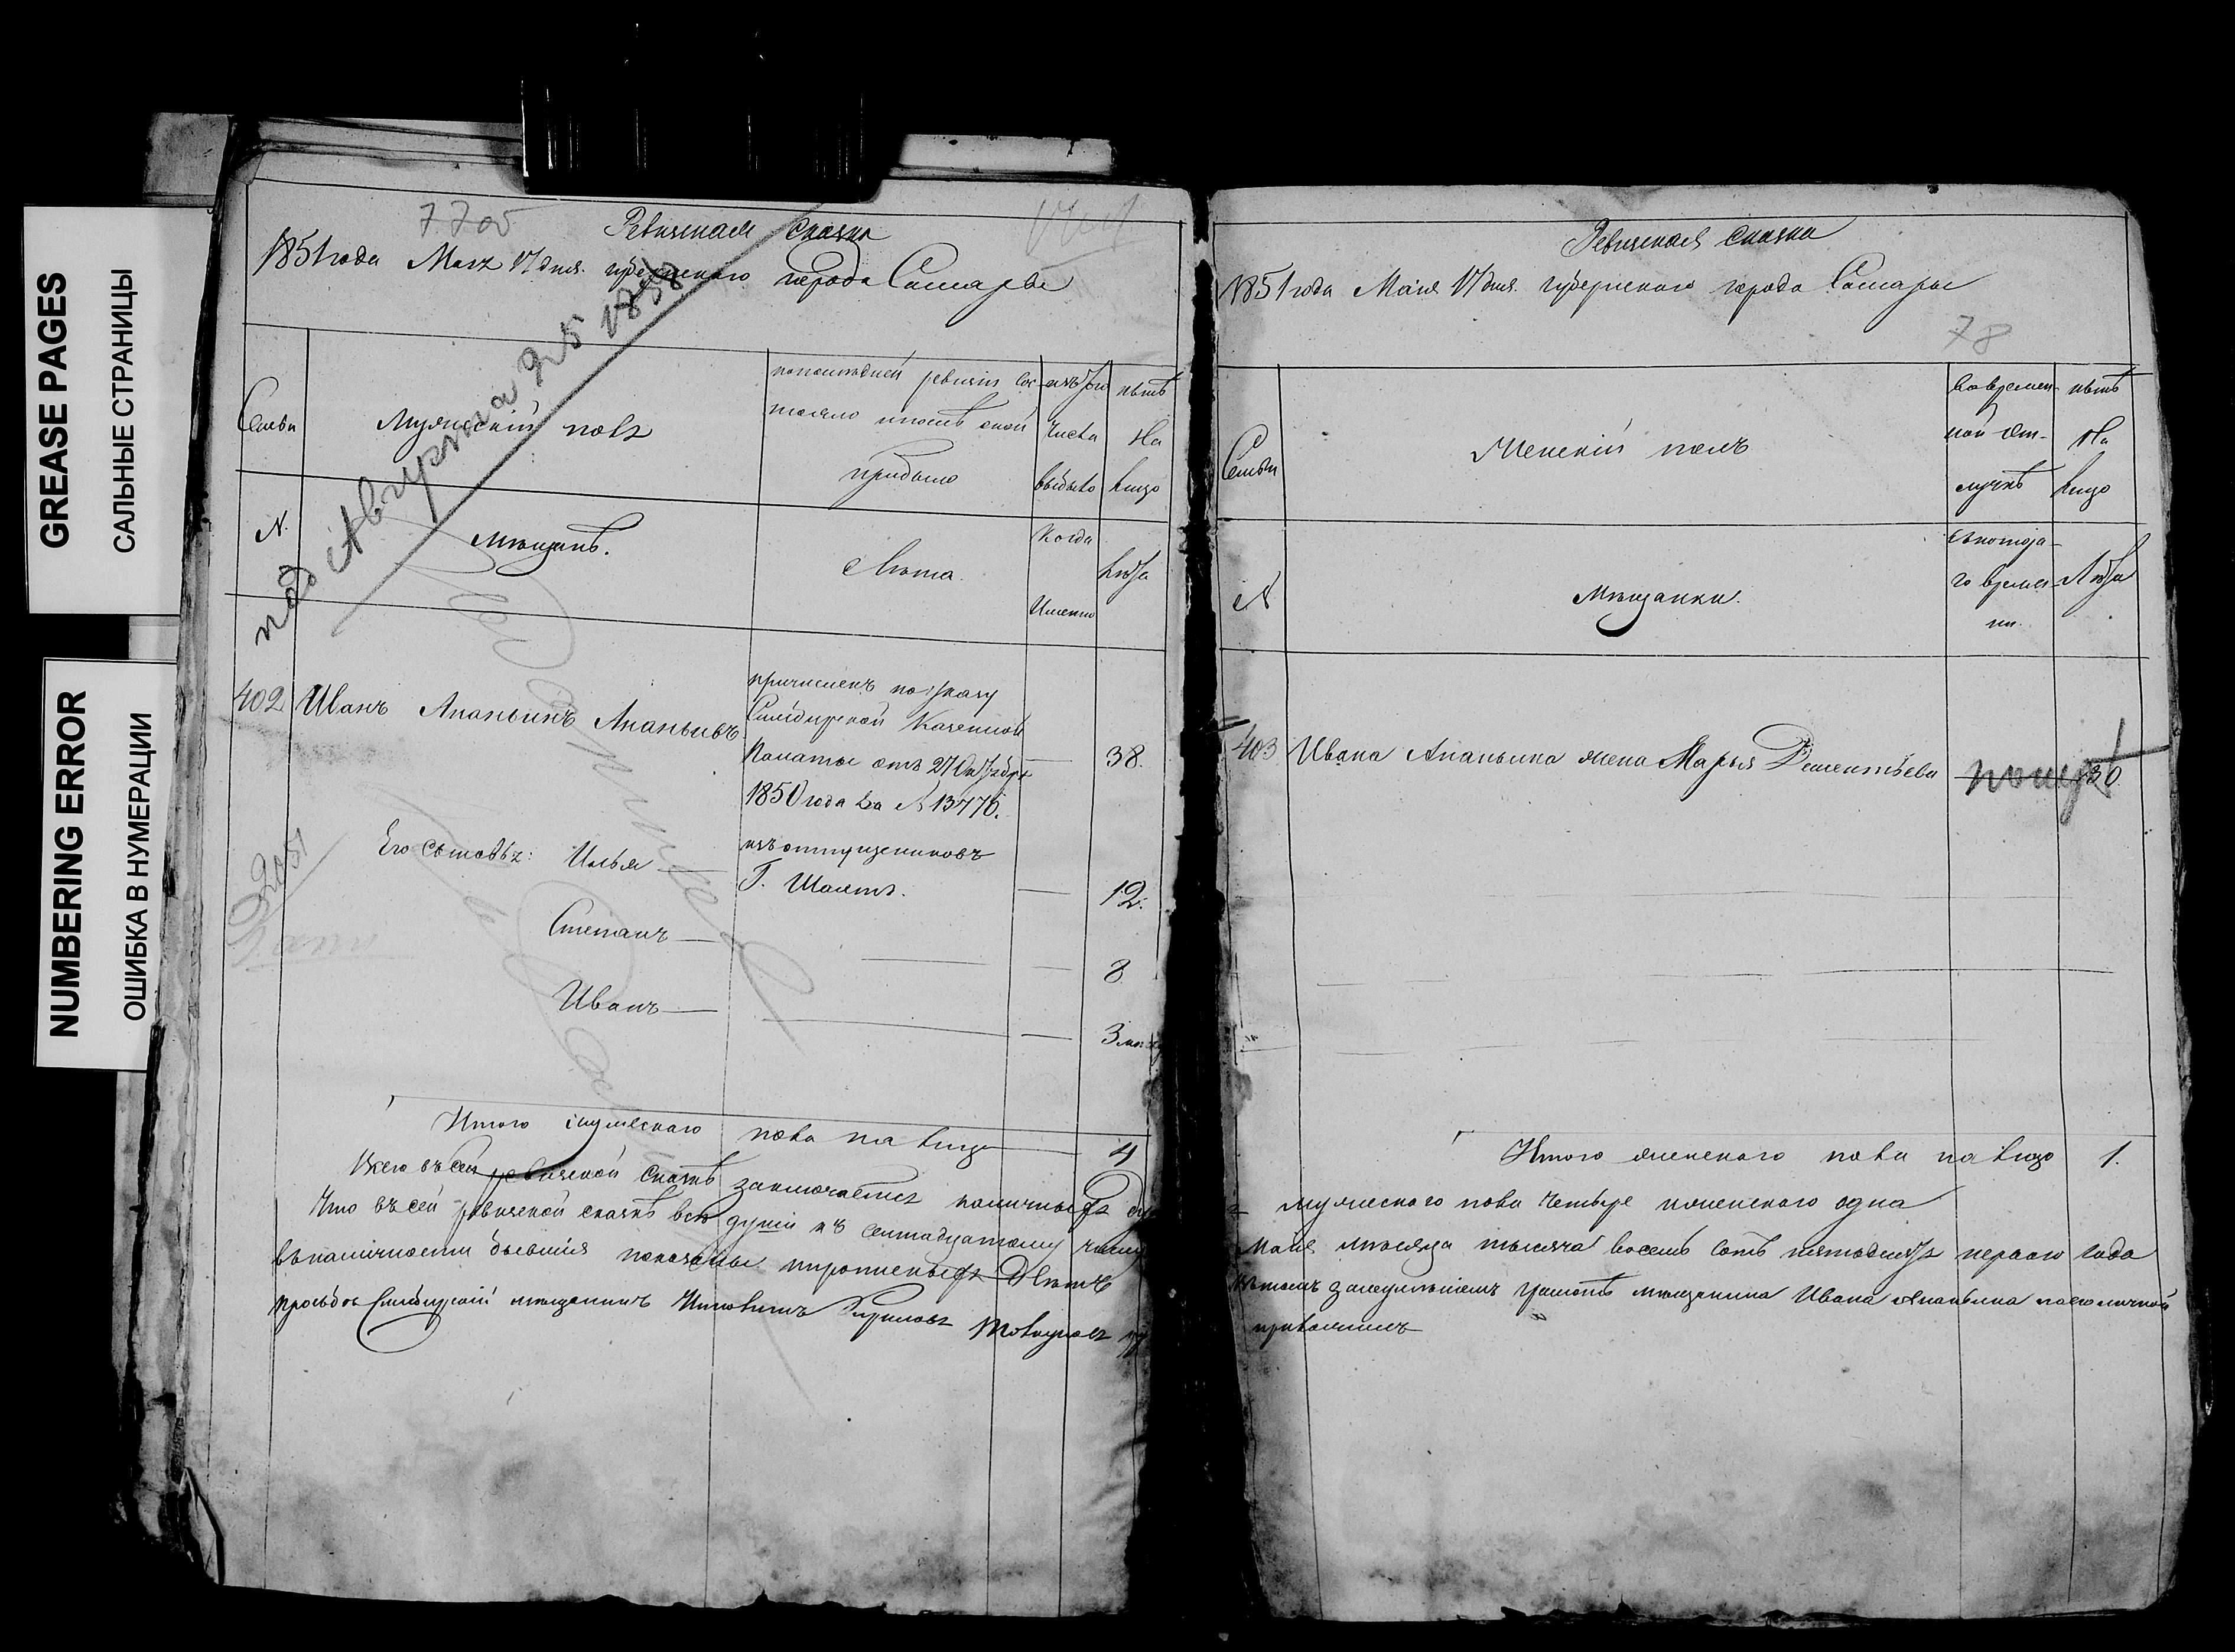 GREASE PAGES
САЛЬНЫЕ СТРАНИЦЫ
NUMBERING ERROR
ОШИБКА В НУМЕРАЦИИ
Ревизская сказка
1851 года Маія 17 дня. губернскаго города Самары
под Августа 25 1858
Семьи
Мужескій полъ
по последней ревизіи сос-
тояло и после оной
прибыло
изъ того
числа
выбыло
летъ
на
лицо
№
Мещанъ.
Лета.
Когда
Именно
Лета
402
Иванъ Ананьинъ Ананьивъ
причисленъ по указу
Симбирской Казенной
Палаты отъ 27 Октября
1850 года за № 13776.
изъ отпущениковъ
Г.
38.
Его сыновья: Илья
12.
Степанъ
8
Иванъ
3
Итого мужескаго пола на лицо
4
Всего въ сей ревизской сказке заключается наличныхъ
Что въ сей ревизской сказке все души къ семнадцатому числу
въ наличности бывшія показаны и прописныхъ нетъ
просьбою Симбирскій мещанинъ
Ревизская сказка
1851 года Маія 17 дня. губернскаго города Самары
78
Семьи
Женскій полъ
Во времен-
ной от-
лучке
летъ
на
лицо
№
Мещанки.
съ котора-
го време-
ни.
Лета
403
Ивана Ананьина жена Марья Дементьева
30
Итого женскаго пола на лицо
1.
мужескаго пола четыре и женскаго одна
Маія месяца тысяча восемь сотъ пятьдесятъ перваго года
мещанина Ивана Ананьина
приложилъ